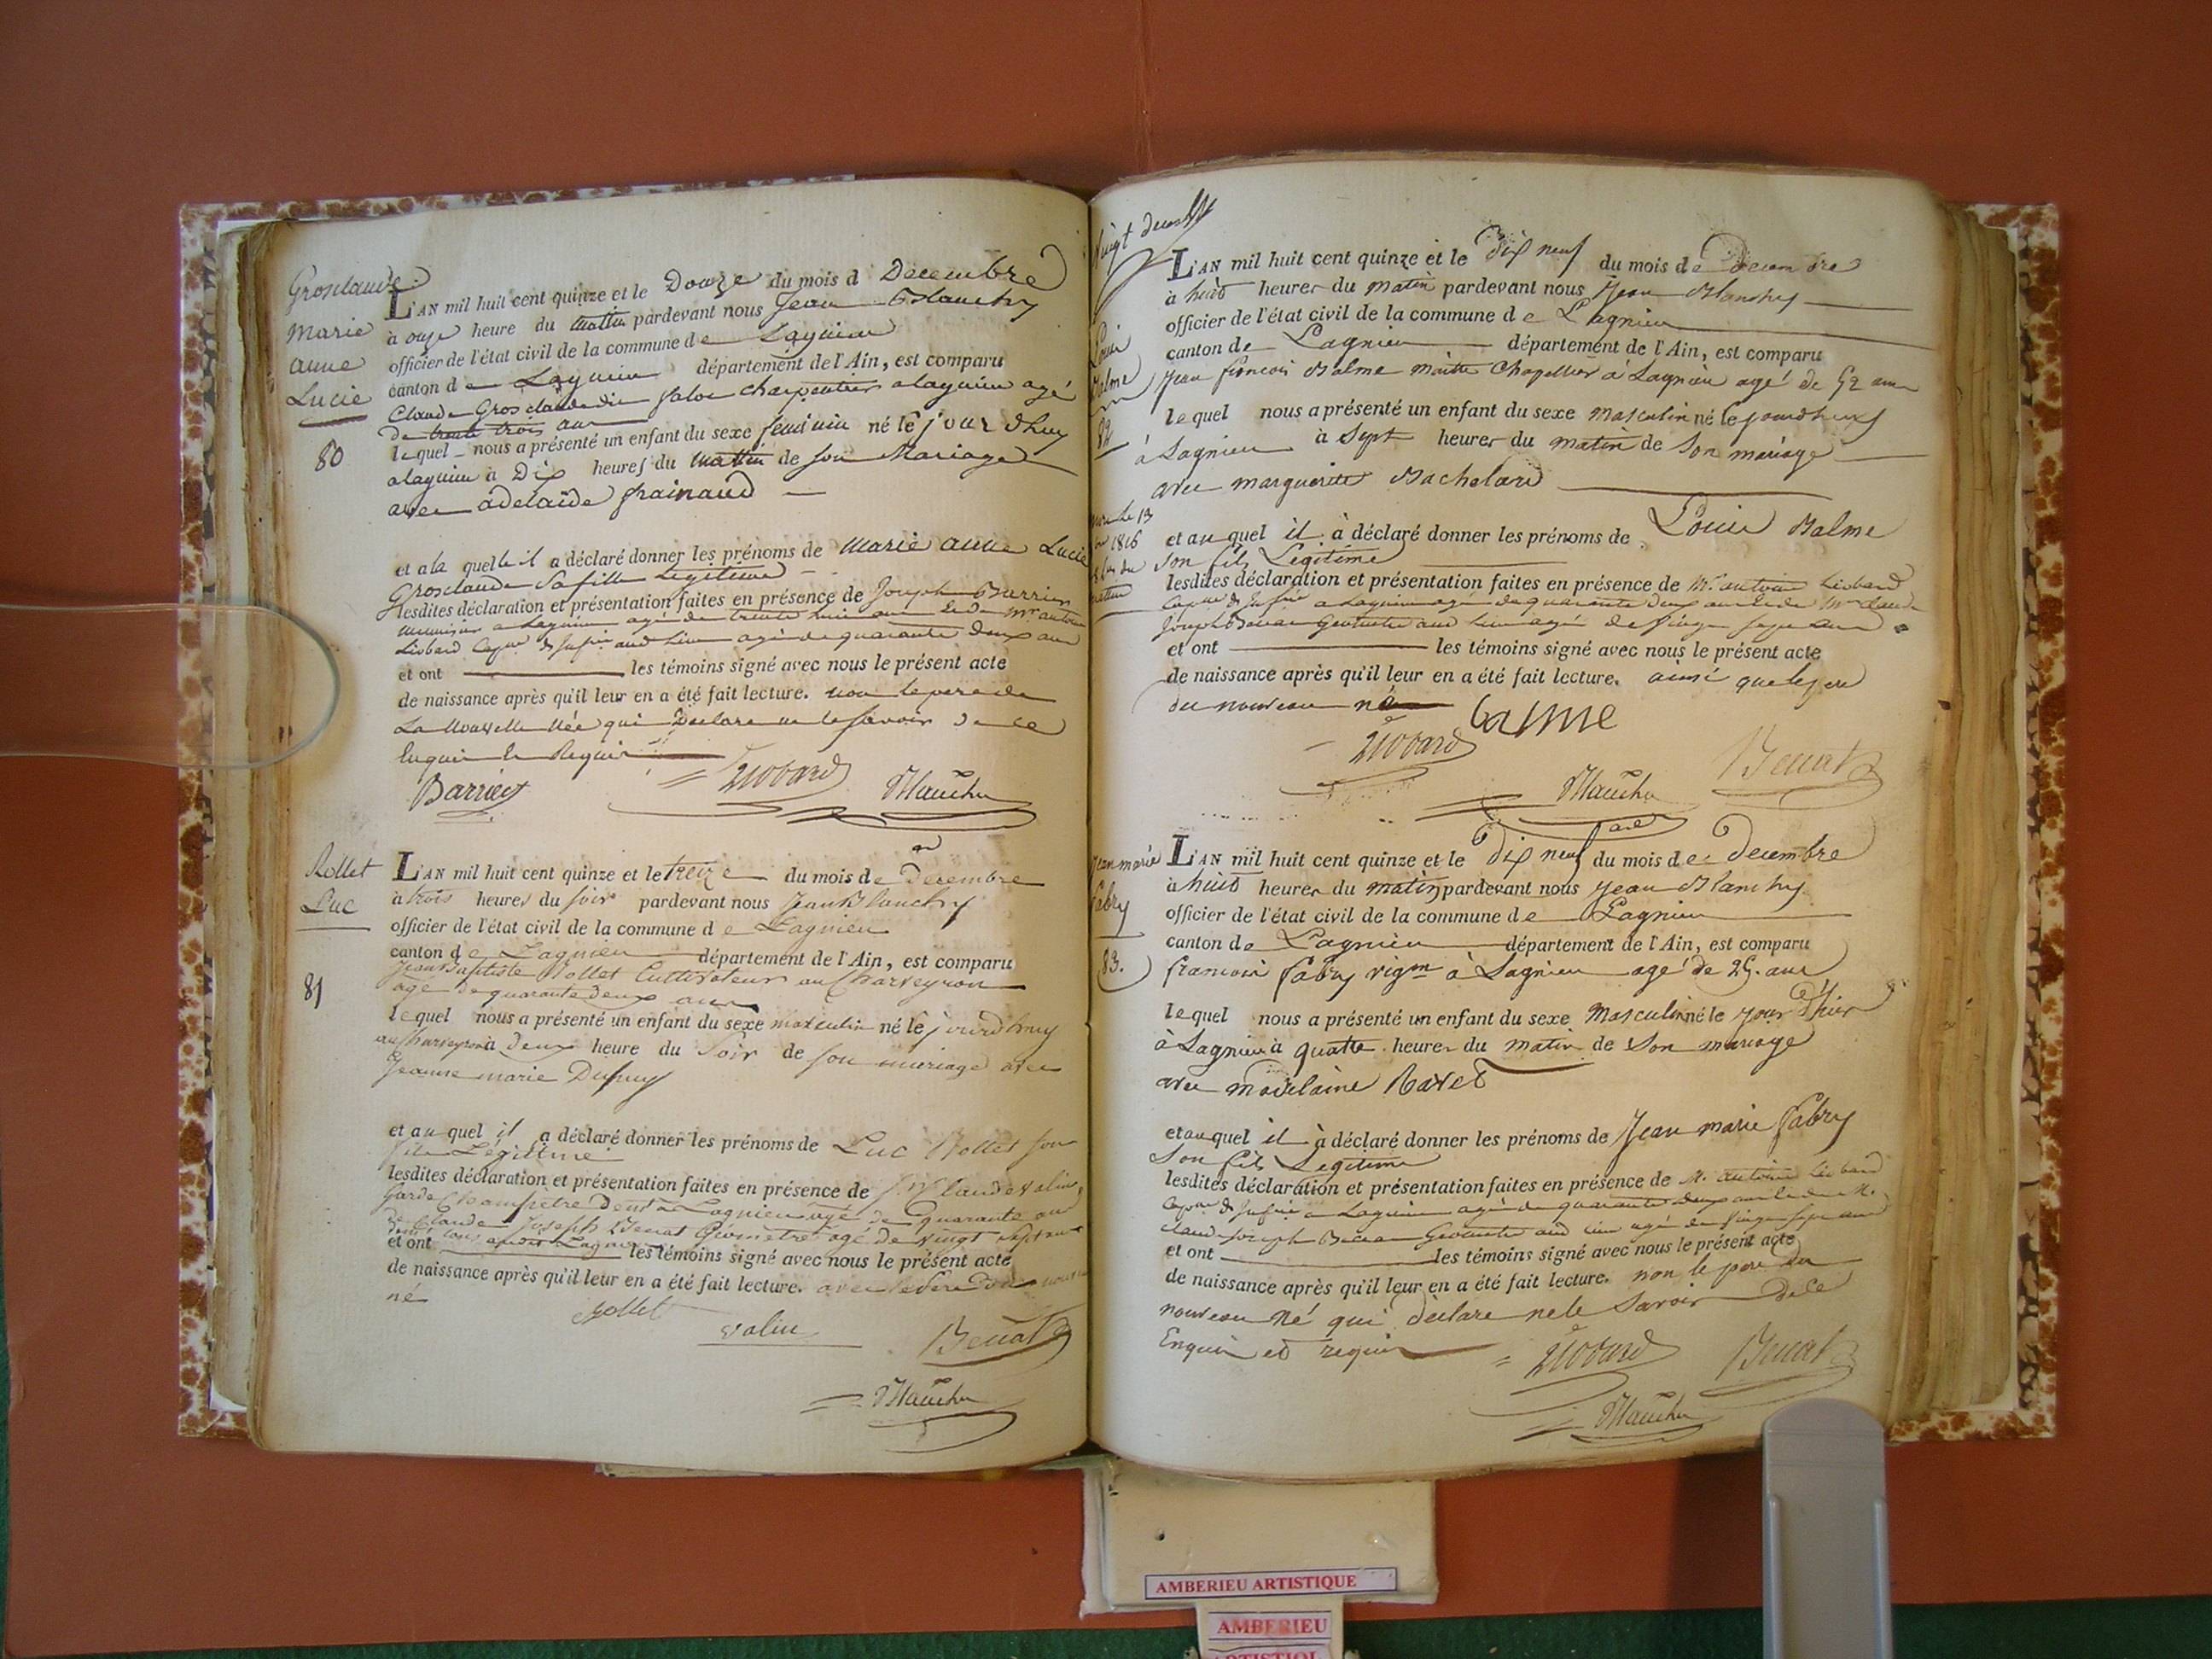 Grosclaude
Marie
anne
Lucie
80
L'AN mil huit cent quinze et le Douze du mois d Decembre
à onze heure du matin pardevant nous Jean Blanchy
officier de l'état civil de la commune de Lagnieu
canton de Lagnieu département de l'Ain, est comparu
Claude Grosclaude dit charpentier a lagnieu agé
de trente trois ans
lequel nous a présenté un enfant du sexe feminin né le jour dhuy
a lagnieu à Dix heures du matin de son Mariage
avec adelaïde
et a la quelle il a déclaré donner les prénoms de Marie anne Lucie
Grosclaude Sa fille Legitime
lesdites déclaration et présentation faites en présence de Joseph Barrier
menuisier a Lagnieu agé de trente huit ans et de Mr antoine
Liobard agé de quarante deux ans
et ont les témoins signé avec nous le présent acte
de naissance après qu'il leur en a été fait lecture. non le pere de
La Nouvelle Née qui Declare ne le savoir de ce
Enquis et Requis
Barrier Liobard Blanchy
Rollet
Luc
81
L'AN mil huit cent quinze et le treize du mois de Decembre
à trois heures du soir pardevant nous Jean Blanchy
officier de l'état civil de la commune de Lagnieu
canton de Lagnieu département de l'Ain, est comparu
Jean Baptiste Rollet Cultivateur au Charveyron
agé de quarante deux ans
lequel nous a présenté un enfant du sexe masculin né le jourdhuy
au Charveyron à deux heure du soir de son mariage avec
Jeanne marie Dupuy
et au quel il a déclaré donner les prénoms de Luc Rollet son
fils Légitime
lesdites déclaration et présentation faites en présence de Claude Valin,
Garde Champetre a Lagnieu agé de quarante ans
et de Claude Joseph Benat Géometre agé de vingt sept ans
et ont les témoins signé avec nous le présent acte
de naissance après qu'il leur en a été fait lecture. avec le père du nouveau
né
Rollet Valin Benat
Blanchy
Vingt deux
Louis
Balme
82
1816
L'AN mil huit cent quinze et le dix neuf du mois de Decembre
à huit heures du matin pardevant nous Jean Blanchy
officier de l'état civil de la commune de Lagnieu
canton de Lagnieu département de l'Ain, est comparu
Jean francois Balme maitre Chapellier à Lagnieu agé de 52 ans
lequel nous a présenté un enfant du sexe masculin né le jourdhuy
à Lagnieu à sept heures du matin de Son mariage
avec marguerite Bachelard
et au quel il à déclaré donner les prénoms de Louis Balme
Son fils Legitime
lesdites déclaration et présentation faites en présence de Mr antoine Liobard
a Lagnieu agé de quarante deux ans et de Mr Claude
Joseph Benat Geometre agé de vingt sept ans
et ont les témoins signé avec nous le présent acte
de naissance après qu'il leur en a été fait lecture. ainsi que le père
du nouveau né
Balme
Liobard Blanchy Benat
Jean marie
Fabry
83.
L'AN mil huit cent quinze et le dix neuf du mois de decembre
à huit heures du matin pardevant nous Jean Blanchy
officier de l'état civil de la commune de Lagnieu
canton de Lagnieu département de l'Ain, est comparu
francois Fabry vigon à Lagnieu agé de 25. ans
lequel nous a présenté un enfant du sexe Masculin né le jour d'hier
à Lagnieu à quatre heures du matin de Son mariage
avec madelaine Ravet
et au quel il à déclaré donner les prénoms de Jean marie Fabry
Son fils Legitime
lesdites déclaration et présentation faites en présence de M. antoine Liobard
a Lagnieu agé de quarante deux ans et de M.
Claude Joseph Benat Geometre agé de vingt sept ans
et ont les témoins signé avec nous le présent acte
de naissance après qu'il leur en a été fait lecture. non le père du
nouveau né qui déclare ne le Savoir de ce
Enquis et requis
Liobard Benat
Blanchy
AMBERIEU ARTISTIQUE
AMBERIEU